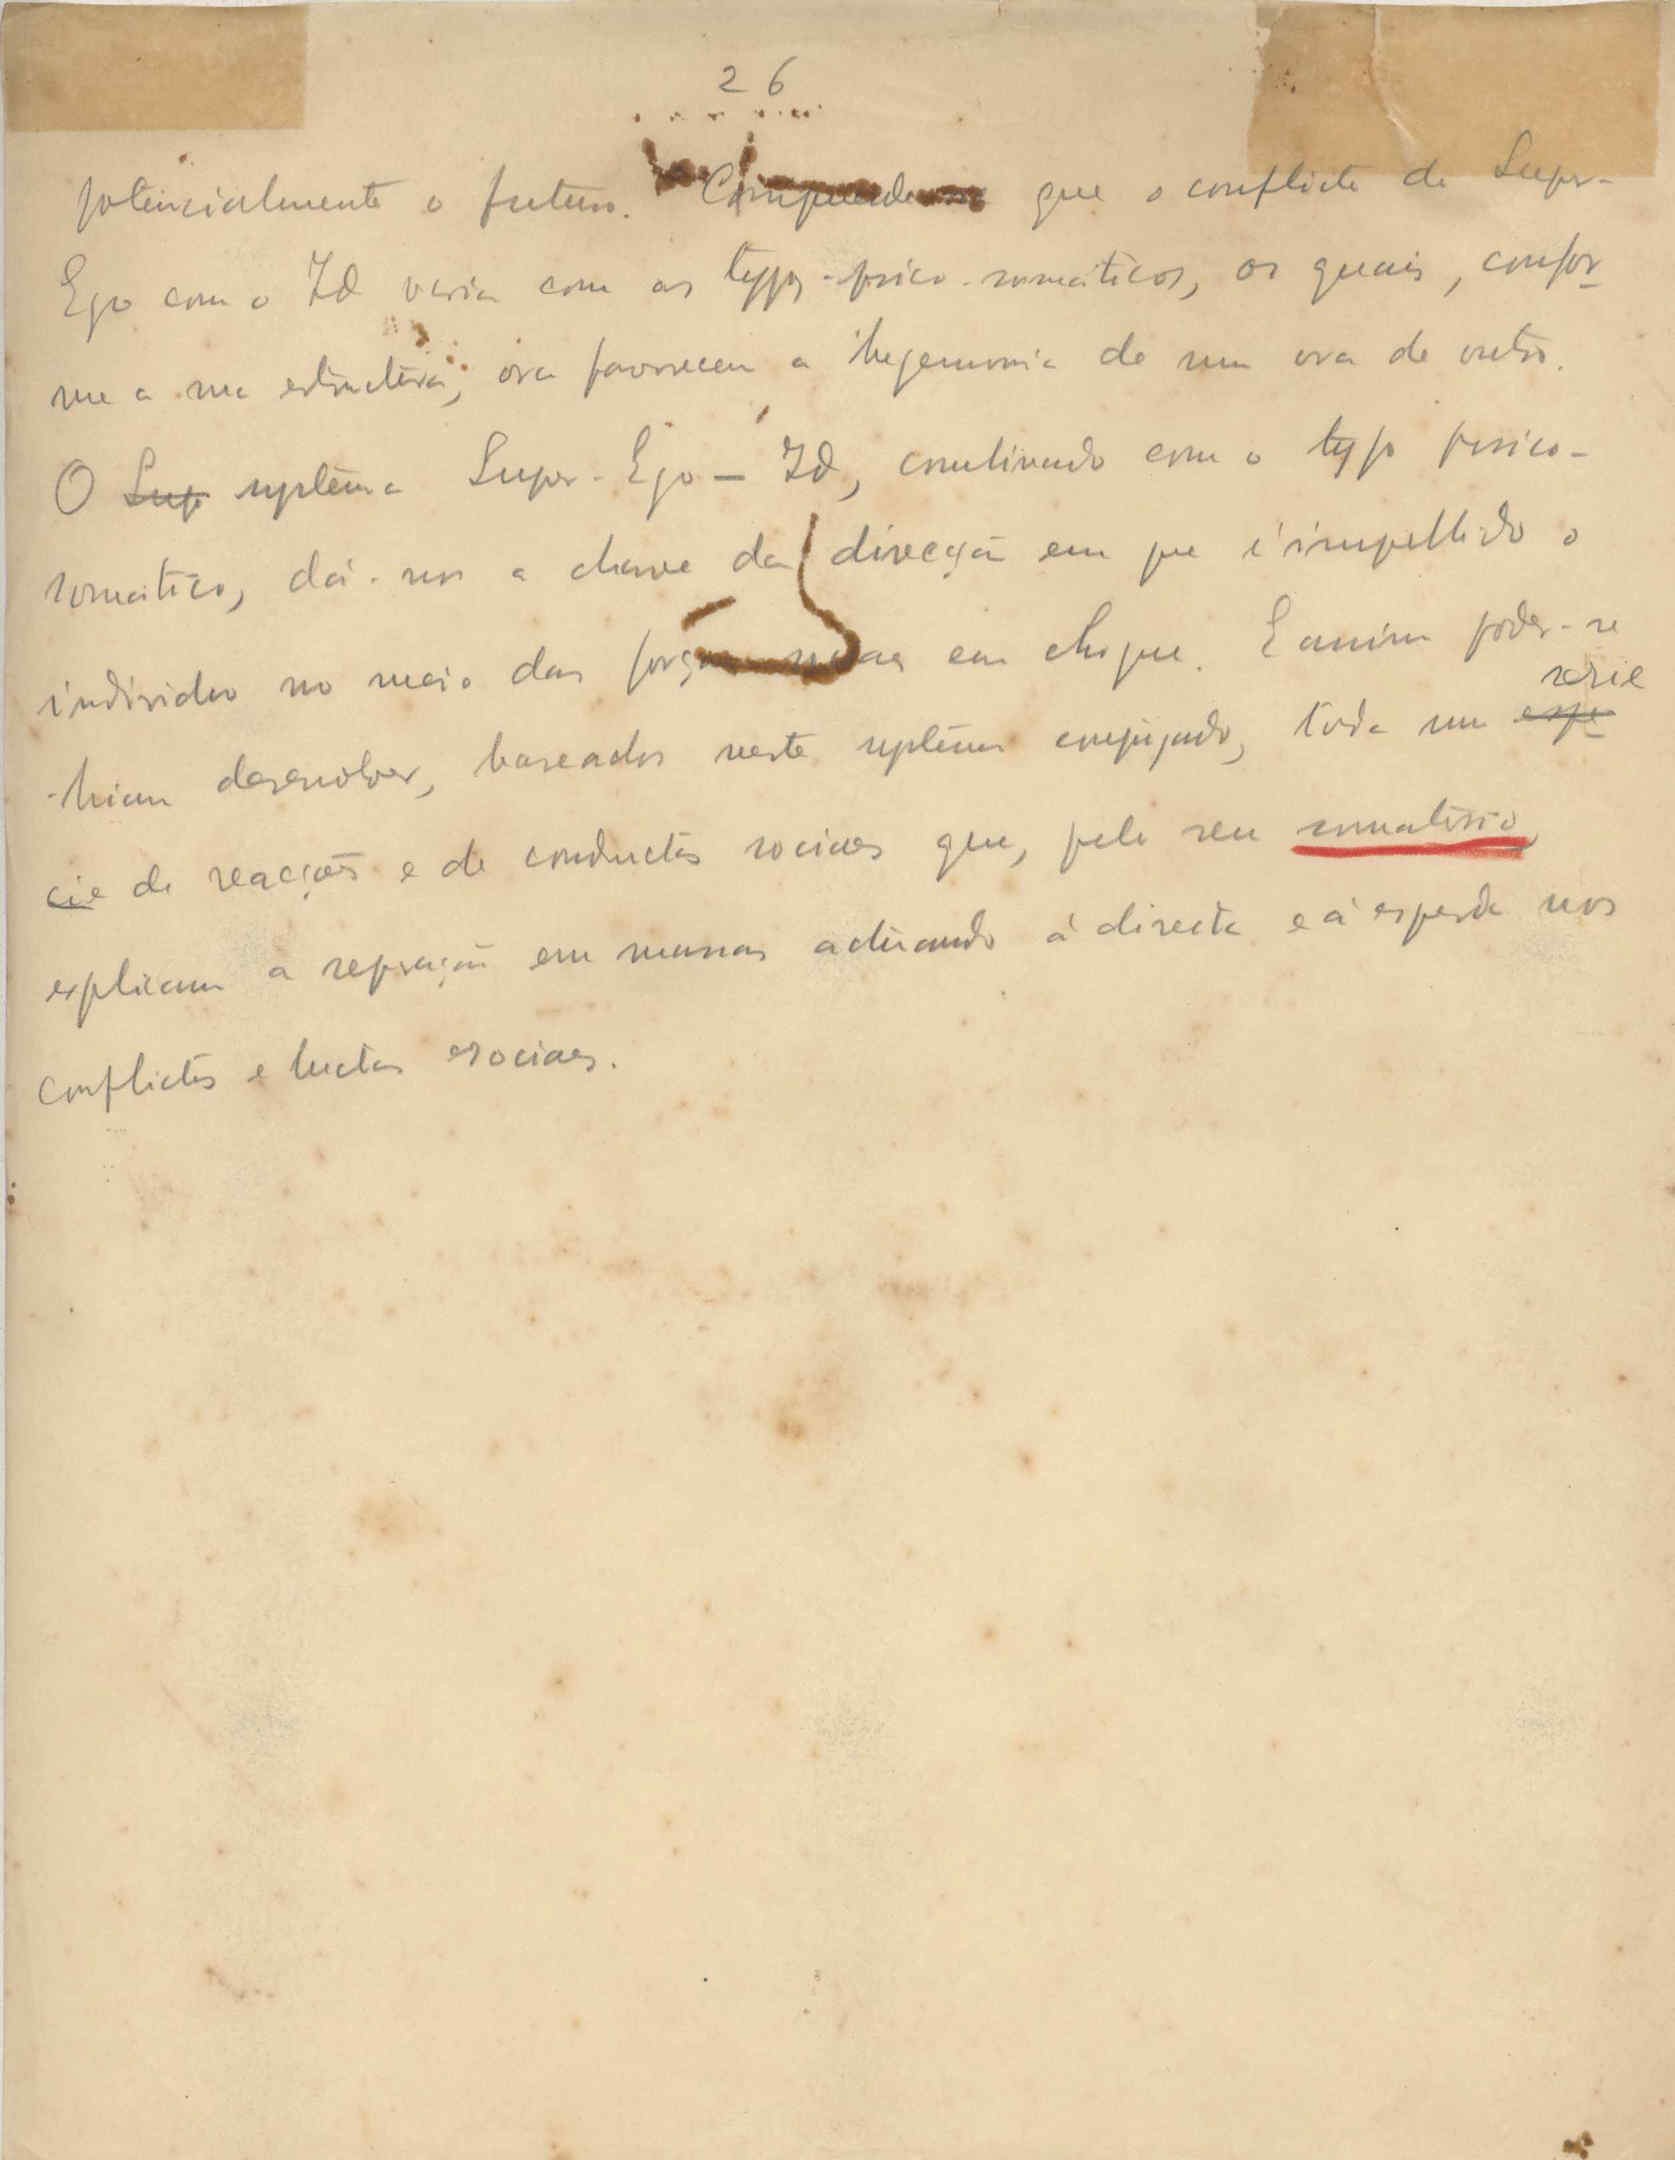 26
potencialmente o futuro. Comprehende-se que o conflicto do Super-
Ego com o Id varia com os typos-psico-somaticos, os quais, confor-
me a sua estructura, ora favorecem a hegemonia de um ora de outro.
O Sup systêma Super-Ego - Id, combinado com o typo psico-
somatico, dá-nos a chave da direcção em que é impellido o
individuo no meio das forças em choque. E assim poder-se
serie
-hiam desenvolver, baseados neste systêma conjugado, toda uma espe-
cie de reacções e de conductas sociaes que, pelo seu somatorio,
explicam a separação em massas actuando á directa e á esperda nos
conflictos e luctas sociaes.